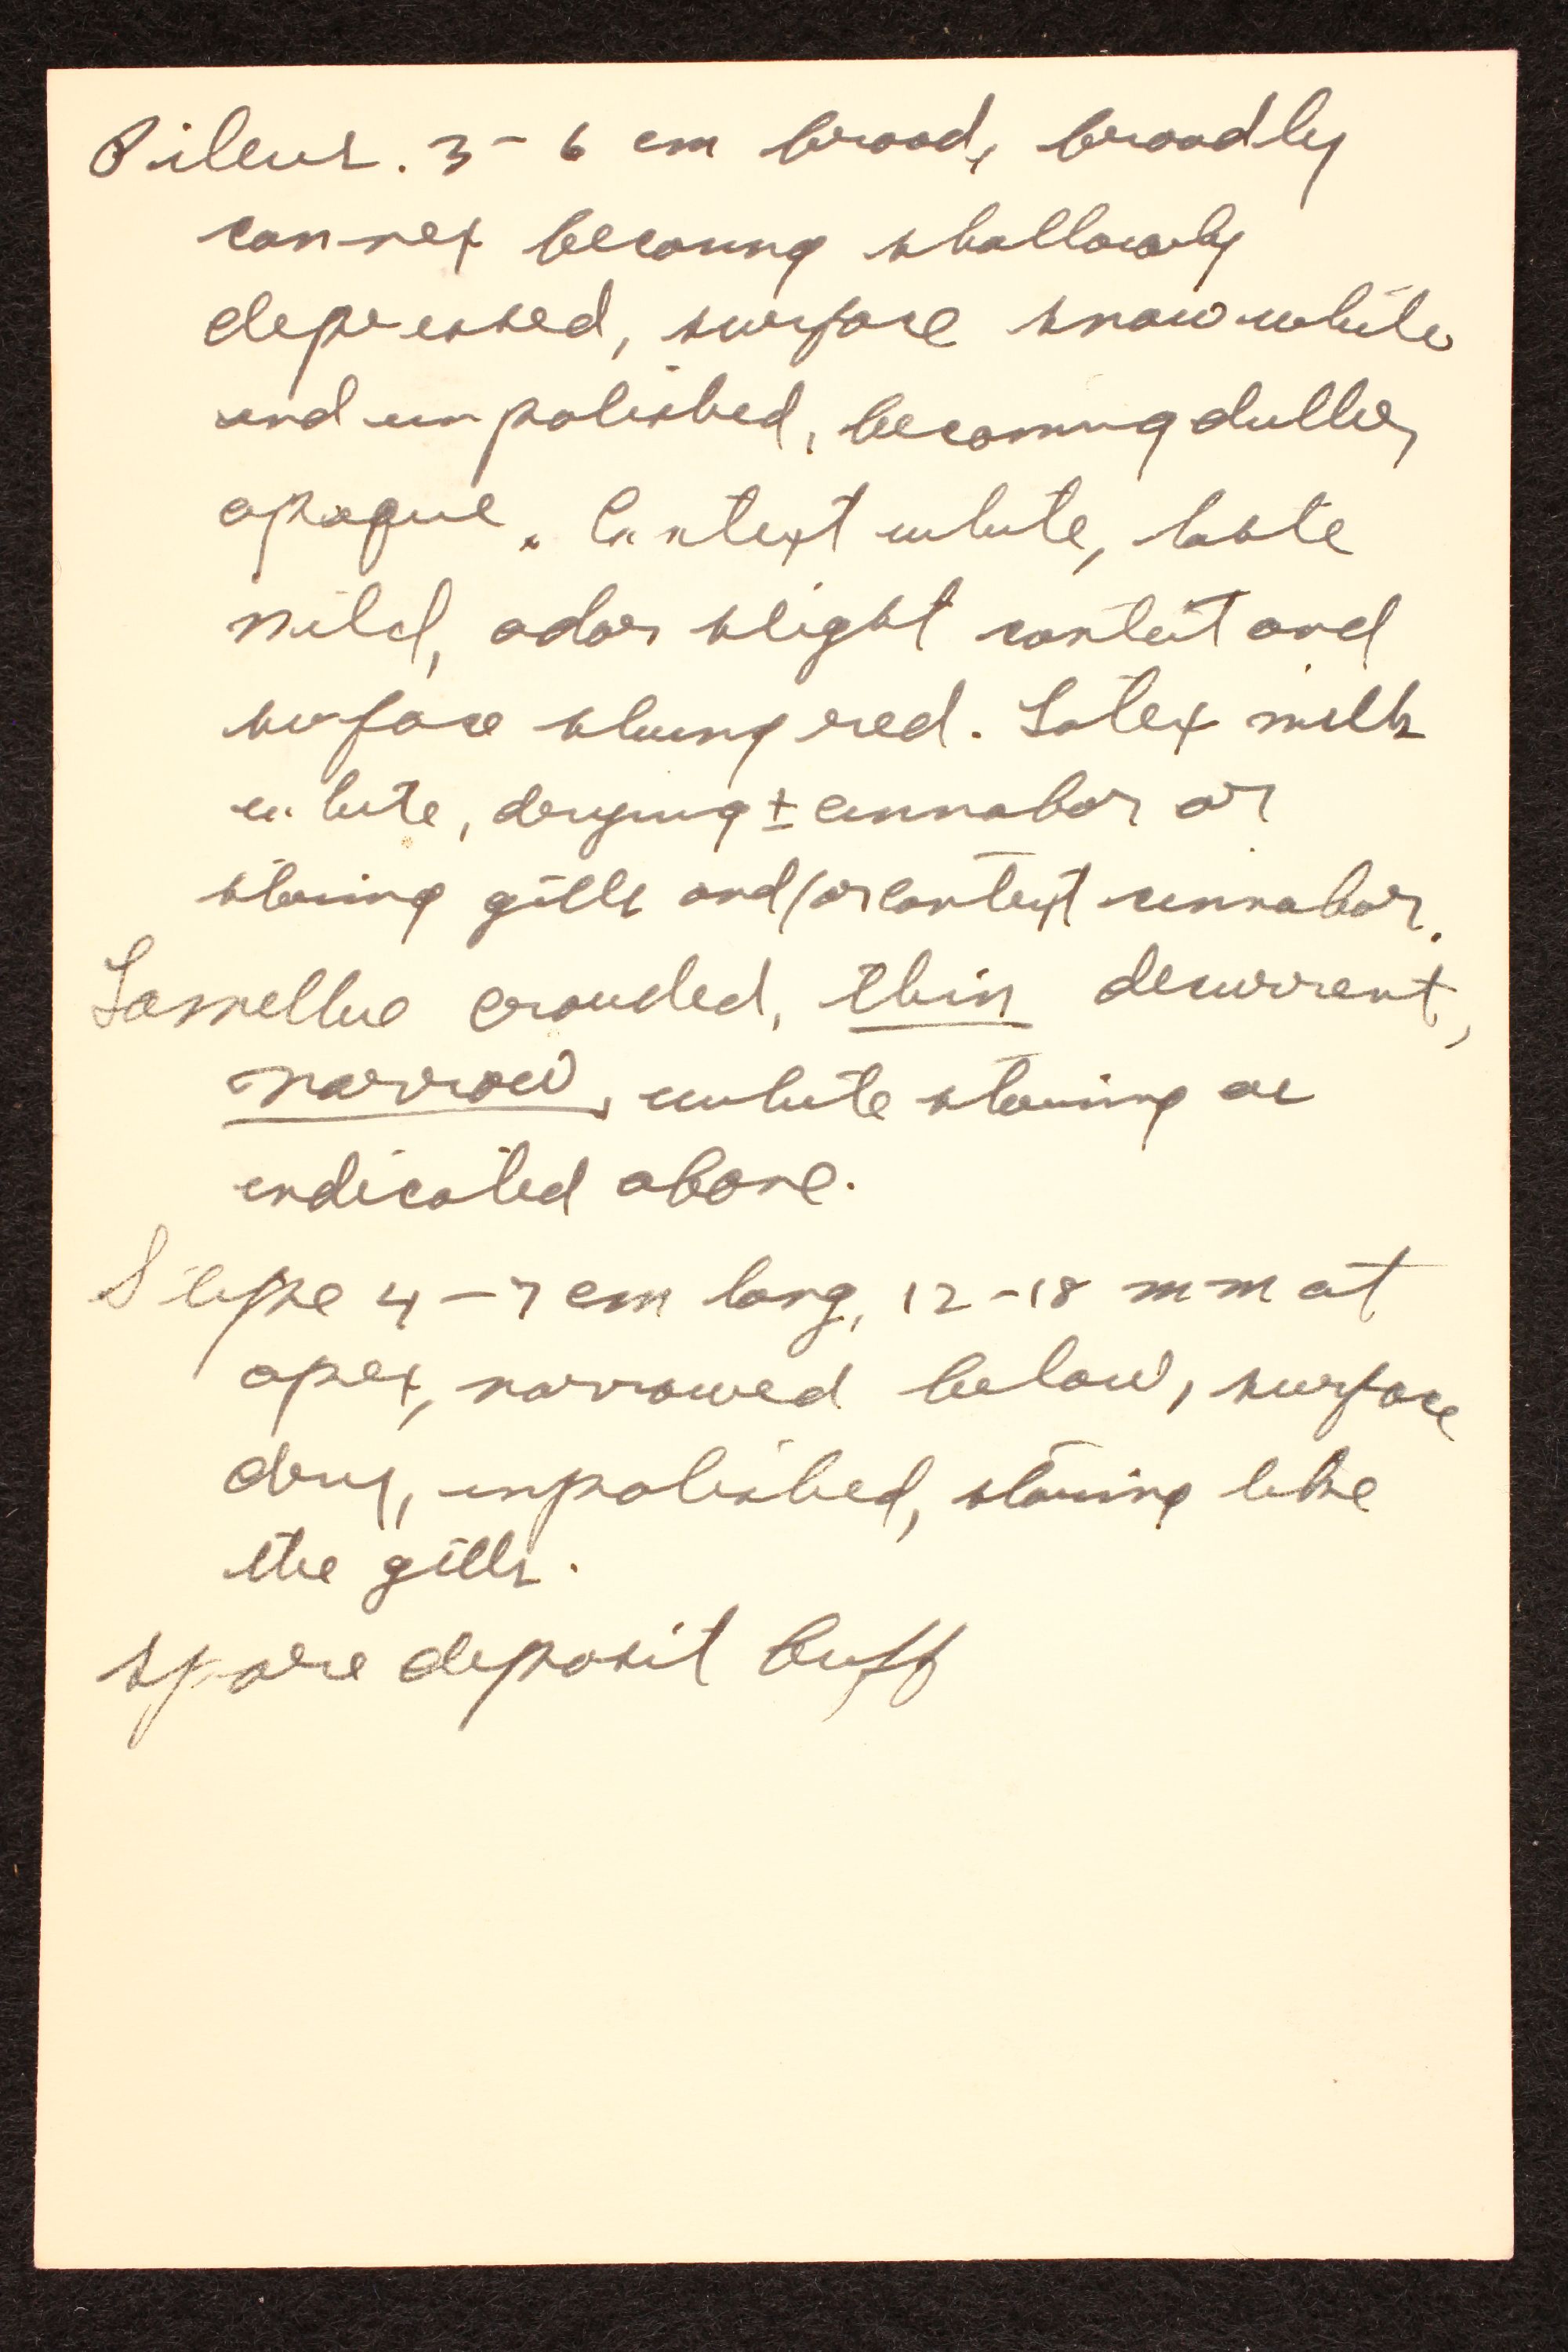 Pileus. 3 - 6 cm broad, broadly
convex becoming shallowly
depressed, surface snow white
and unpolished, becoming duller,
opaque. Context white, taste
mild, odor slight context and
surface staining red. Latex milk
white, drying ± cinnabar or
staining gills and/or context cinnabar.
Lamellae crowded, thin decurrent,
narrow, white staining as
indicated above.
Stipe 4 - 7 cm long, 12 - 18 mm at
apex, narrowed below, surface
dry, unpolished, staining like
the gills.
spore deposit buff